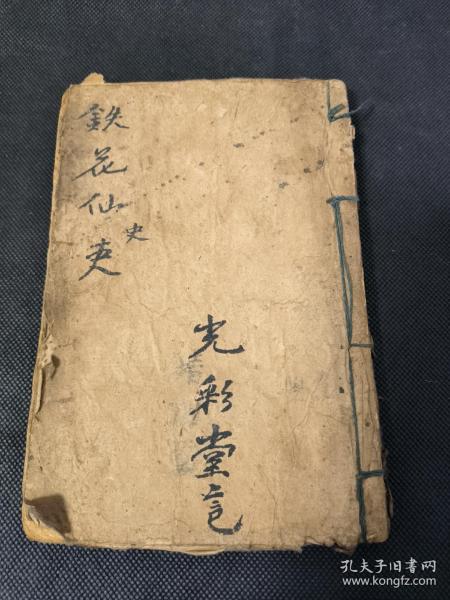 鉄花仙吏
史
光彩堂
孔夫子旧书网
www.kongfz.com